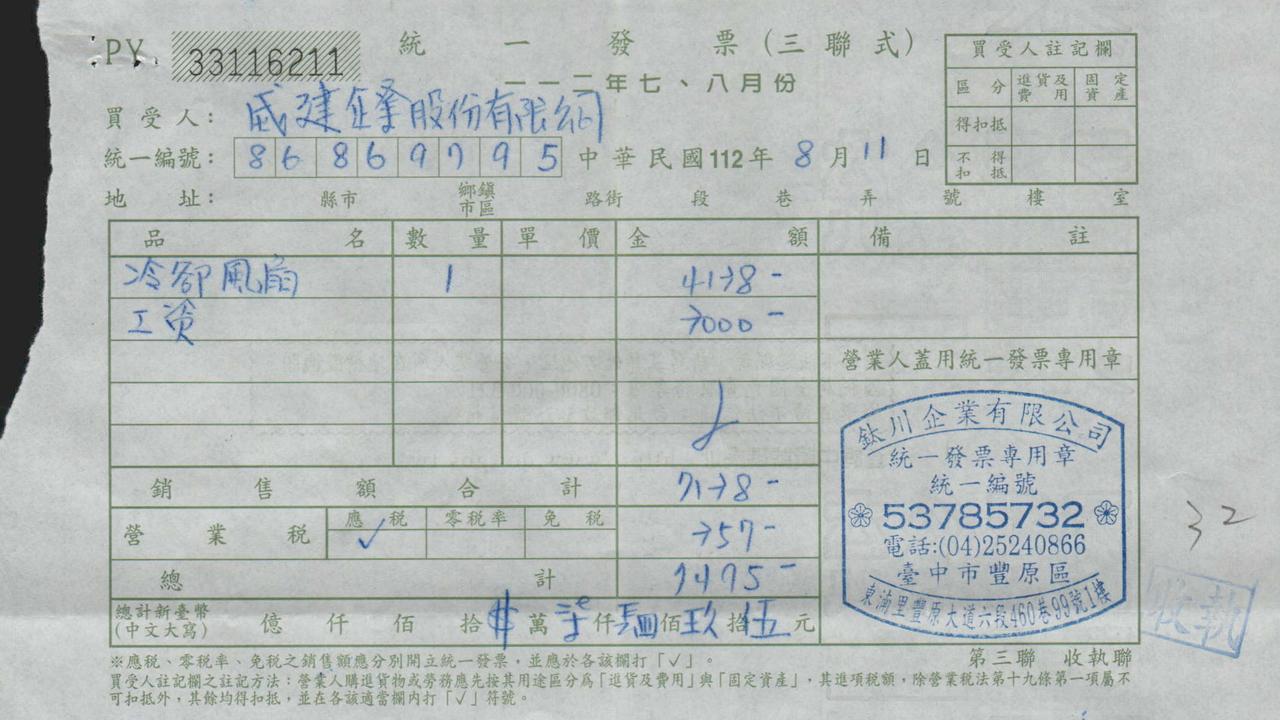 PY 33116211 統一發票(三聯式)
一一二年七、八月份
買受人註記欄
區分 進貨及費用 固定資產
得扣抵
不得扣抵
買受人: 威建企業股份有限公司
統一編號: 86869795 中華民國112年 8月11日
地址: 縣市 鄉鎮市區 路街 段 巷 弄 號 樓 室
品名 數量 單價 金額 備註
冷卻風扇 1 4138-
工資 3000-
營業人蓋用統一發票專用章
銷售額合計 7138-
營業稅 應稅 ✓ 零稅率 免稅 357-
總計 7495-
總計新臺幣(中文大寫) 億 仟 佰 拾 $ 萬 柒 仟 肆 佰 玖 拾 伍 元
鈦川企業有限公司
統一發票專用章
統一編號
53785732
電話:(04)25240866
臺中市豐原區
東湳里豐原大道六段460巷99號1樓
32
收執
第三聯 收執聯
※應稅、零稅率、免稅之銷售額應分別開立統一發票,並應於各該欄打「✓」。
買受人註記欄之註記方法:營業人購進貨物或勞務應先按其用途區分為「進貨及費用」與「固定資產」,其進項稅額,除營業稅法第十九條第一項屬不
可扣抵外,其餘均得扣抵,並在各該適當欄內打「✓」符號。